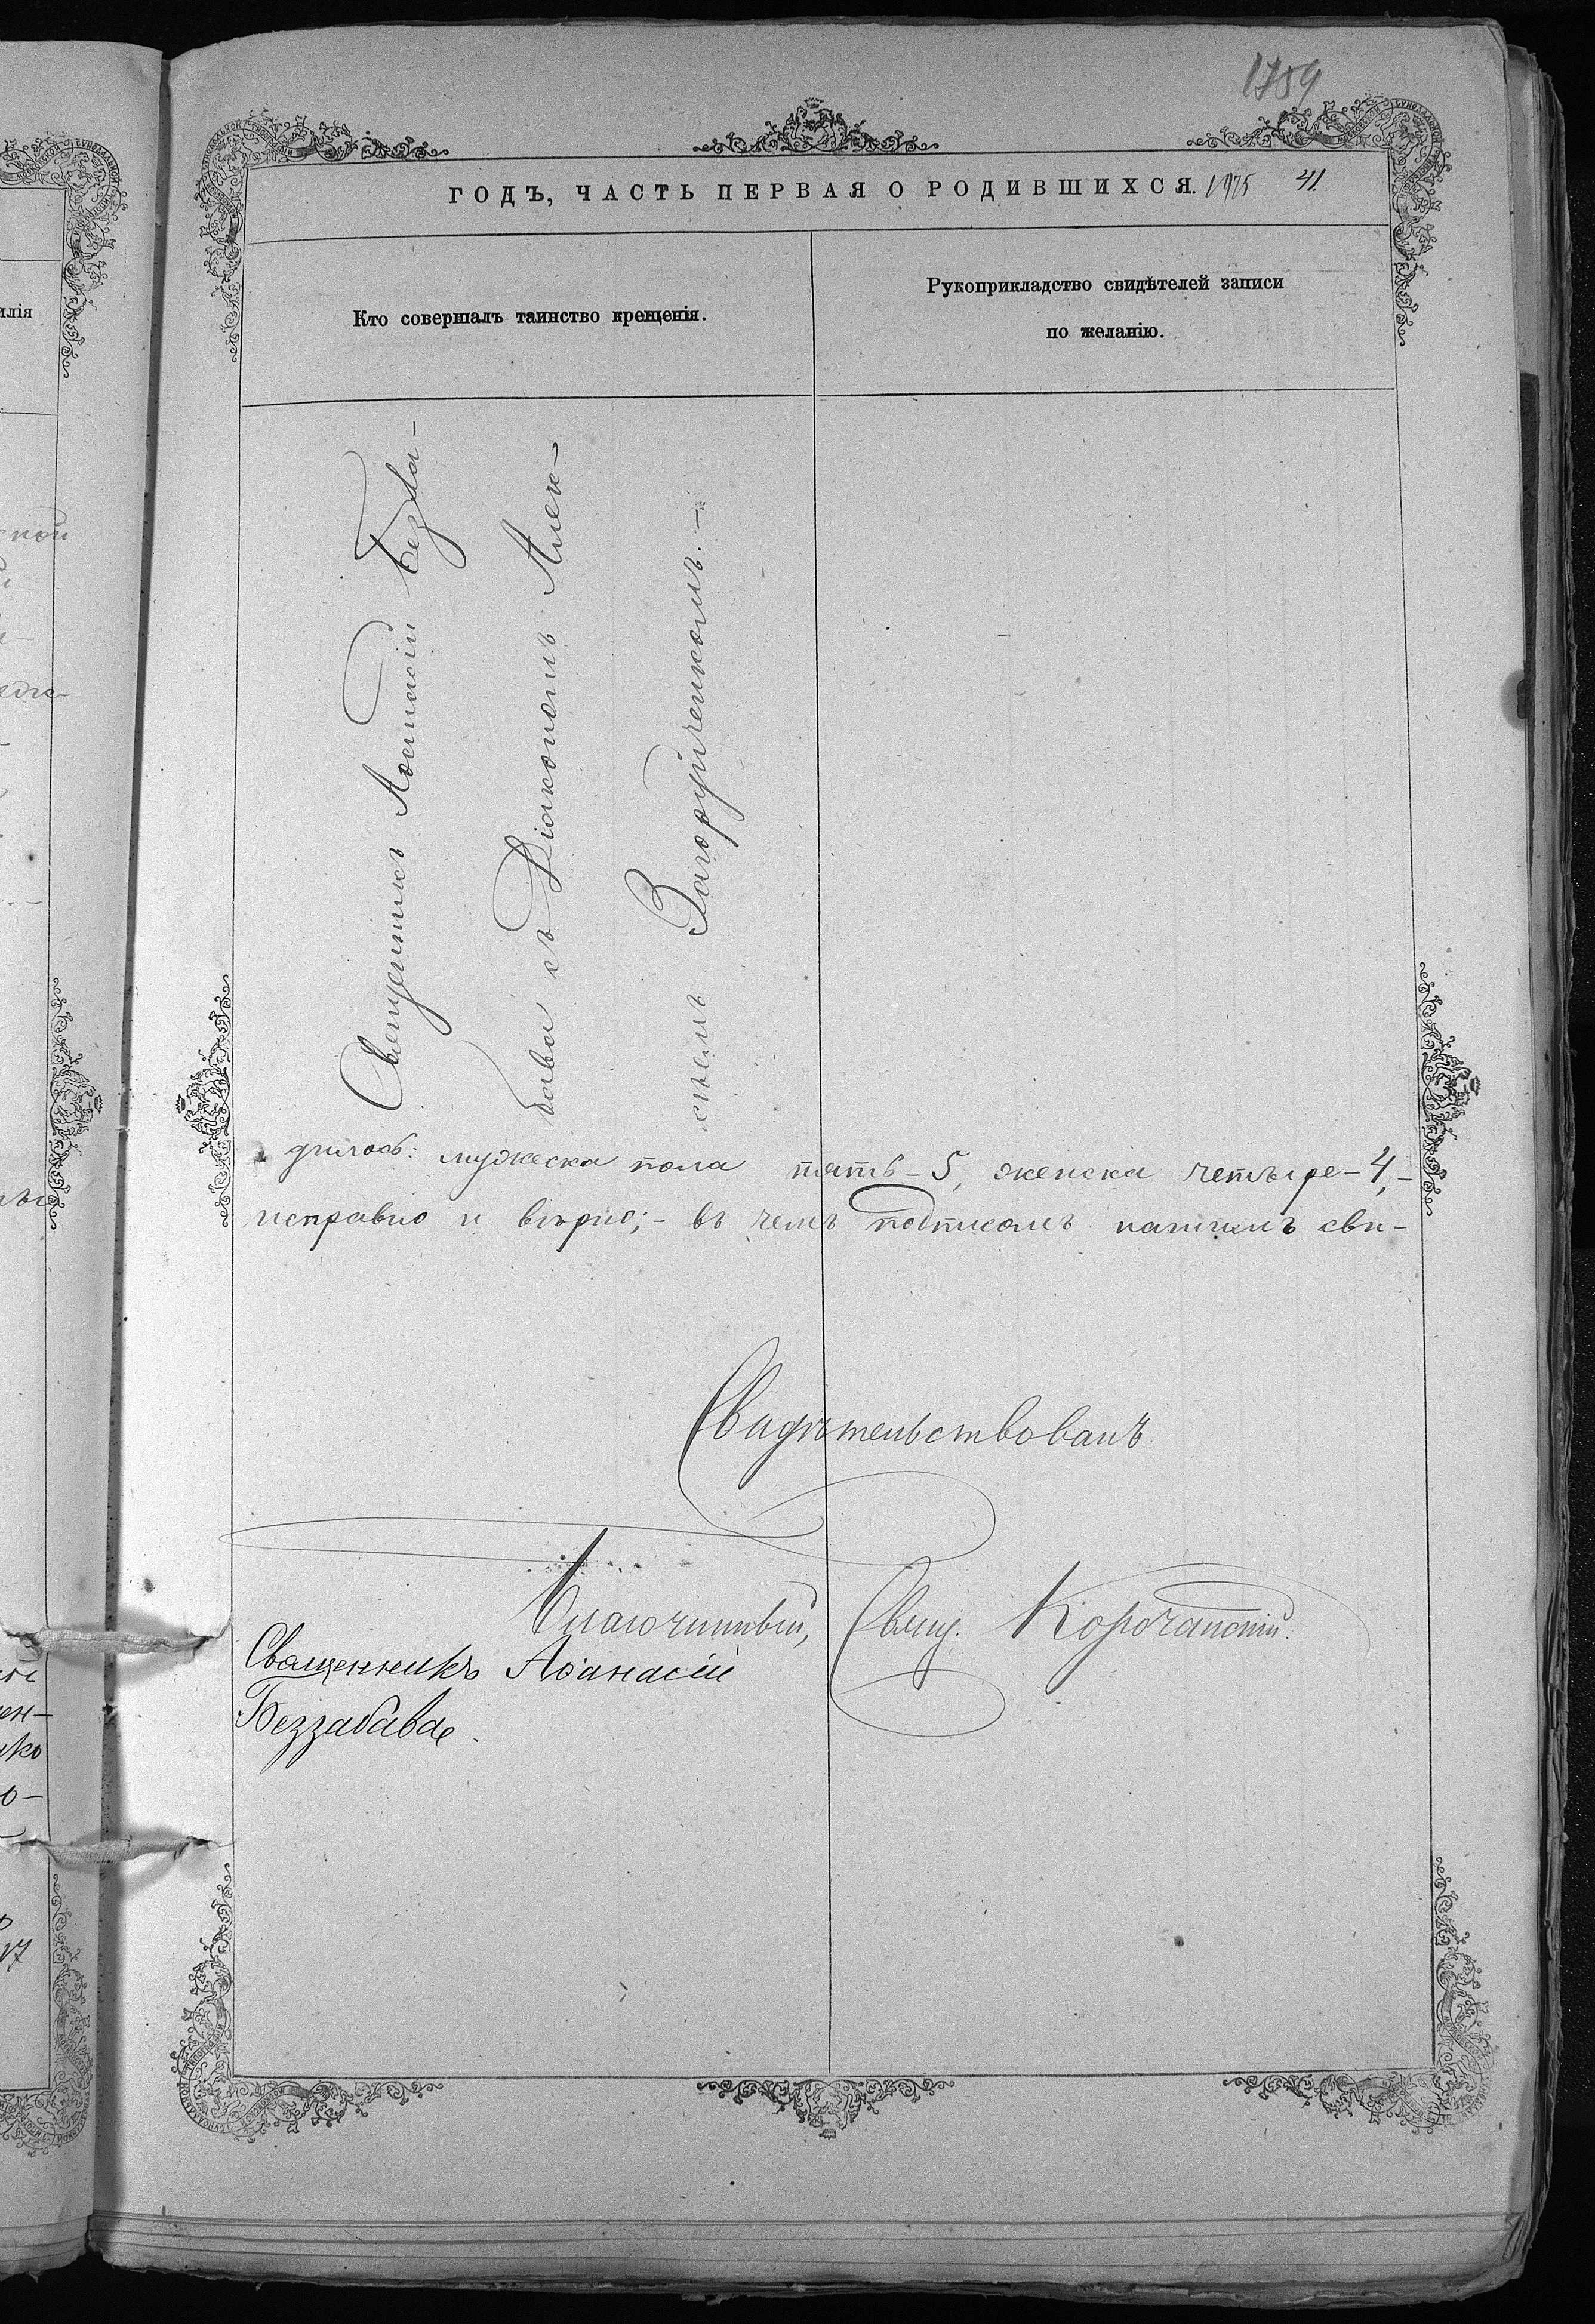 1759
ГОДЪ, ЧАСТЬ ПЕРВАЯ О РОДИВШИХСЯ. 1975 41.
Кто совершалъ таинство крещенія.
Рукоприкладство свидѣтелей записи
по желанію.
Священникъ Аѳанасій Безза-
бава съ Діакономъ Алек-
сѣемъ Загоруйченкомъ. –
дилось: мужеска пола пять – 5, женска четыре – 4, –
исправно и вѣрно; – въ чемъ подписомъ нашимъ сви-
Свидѣтельствовалъ
Благочинный, Свящ. Корочанскій.
Священникъ Аѳанасій
Беззабава.
илія